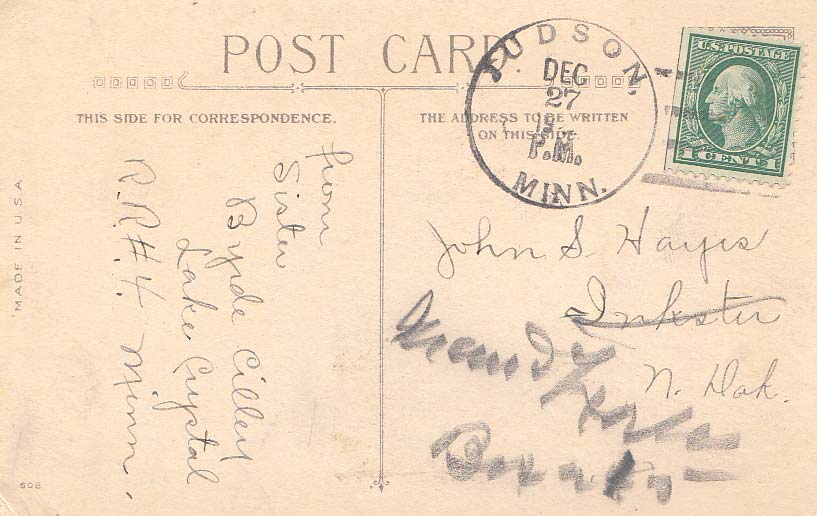 POST CARD.
THIS SIDE FOR CORRESPONDENCE.
THE ADDRESS TO BE WRITTEN
ON THIS SIDE.
JUDSON,
DEC
27
P.M.
MINN.
U.S. POSTAGE
1 CENT 1
from
Sister
Byrde Cilley
Lake Crystal
R.R.#.4. Minn.
John S. Hayes
Inkster
N. Dak.
Grand Forks
MADE IN U.S.A
608